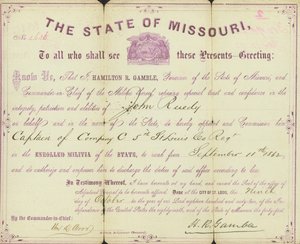 THE STATE OF MISSOURI,
To all who shall see these Presents Greeting:
Know Ye, That I HAMILTON R. GAMBLE, Governor of the State of Missouri, and
Commander-in-Chief of the Militia thereof, reposing special trust and confidence in the
integrity, patriotism and abilities of John
on behalf and in the name of the State, do hereby appoint and Commission him
Captain of Company C 5th St Louis Co Regt
in the ENROLLED MILITIA OF THE STATE, to rank from September 1862
and do authorize and empower him to discharge the duties of said office according to law.
In Testimony Whereof, I have hereunto set my hand and caused the Seal of the Office of
Adjutant General to be hereunto affixed. Done at the CITY OF ST. LOUIS, this
day of October in the year of our Lord eighteen hundred and sixty
By the Commander-in-Chief:
H. R. Gamble